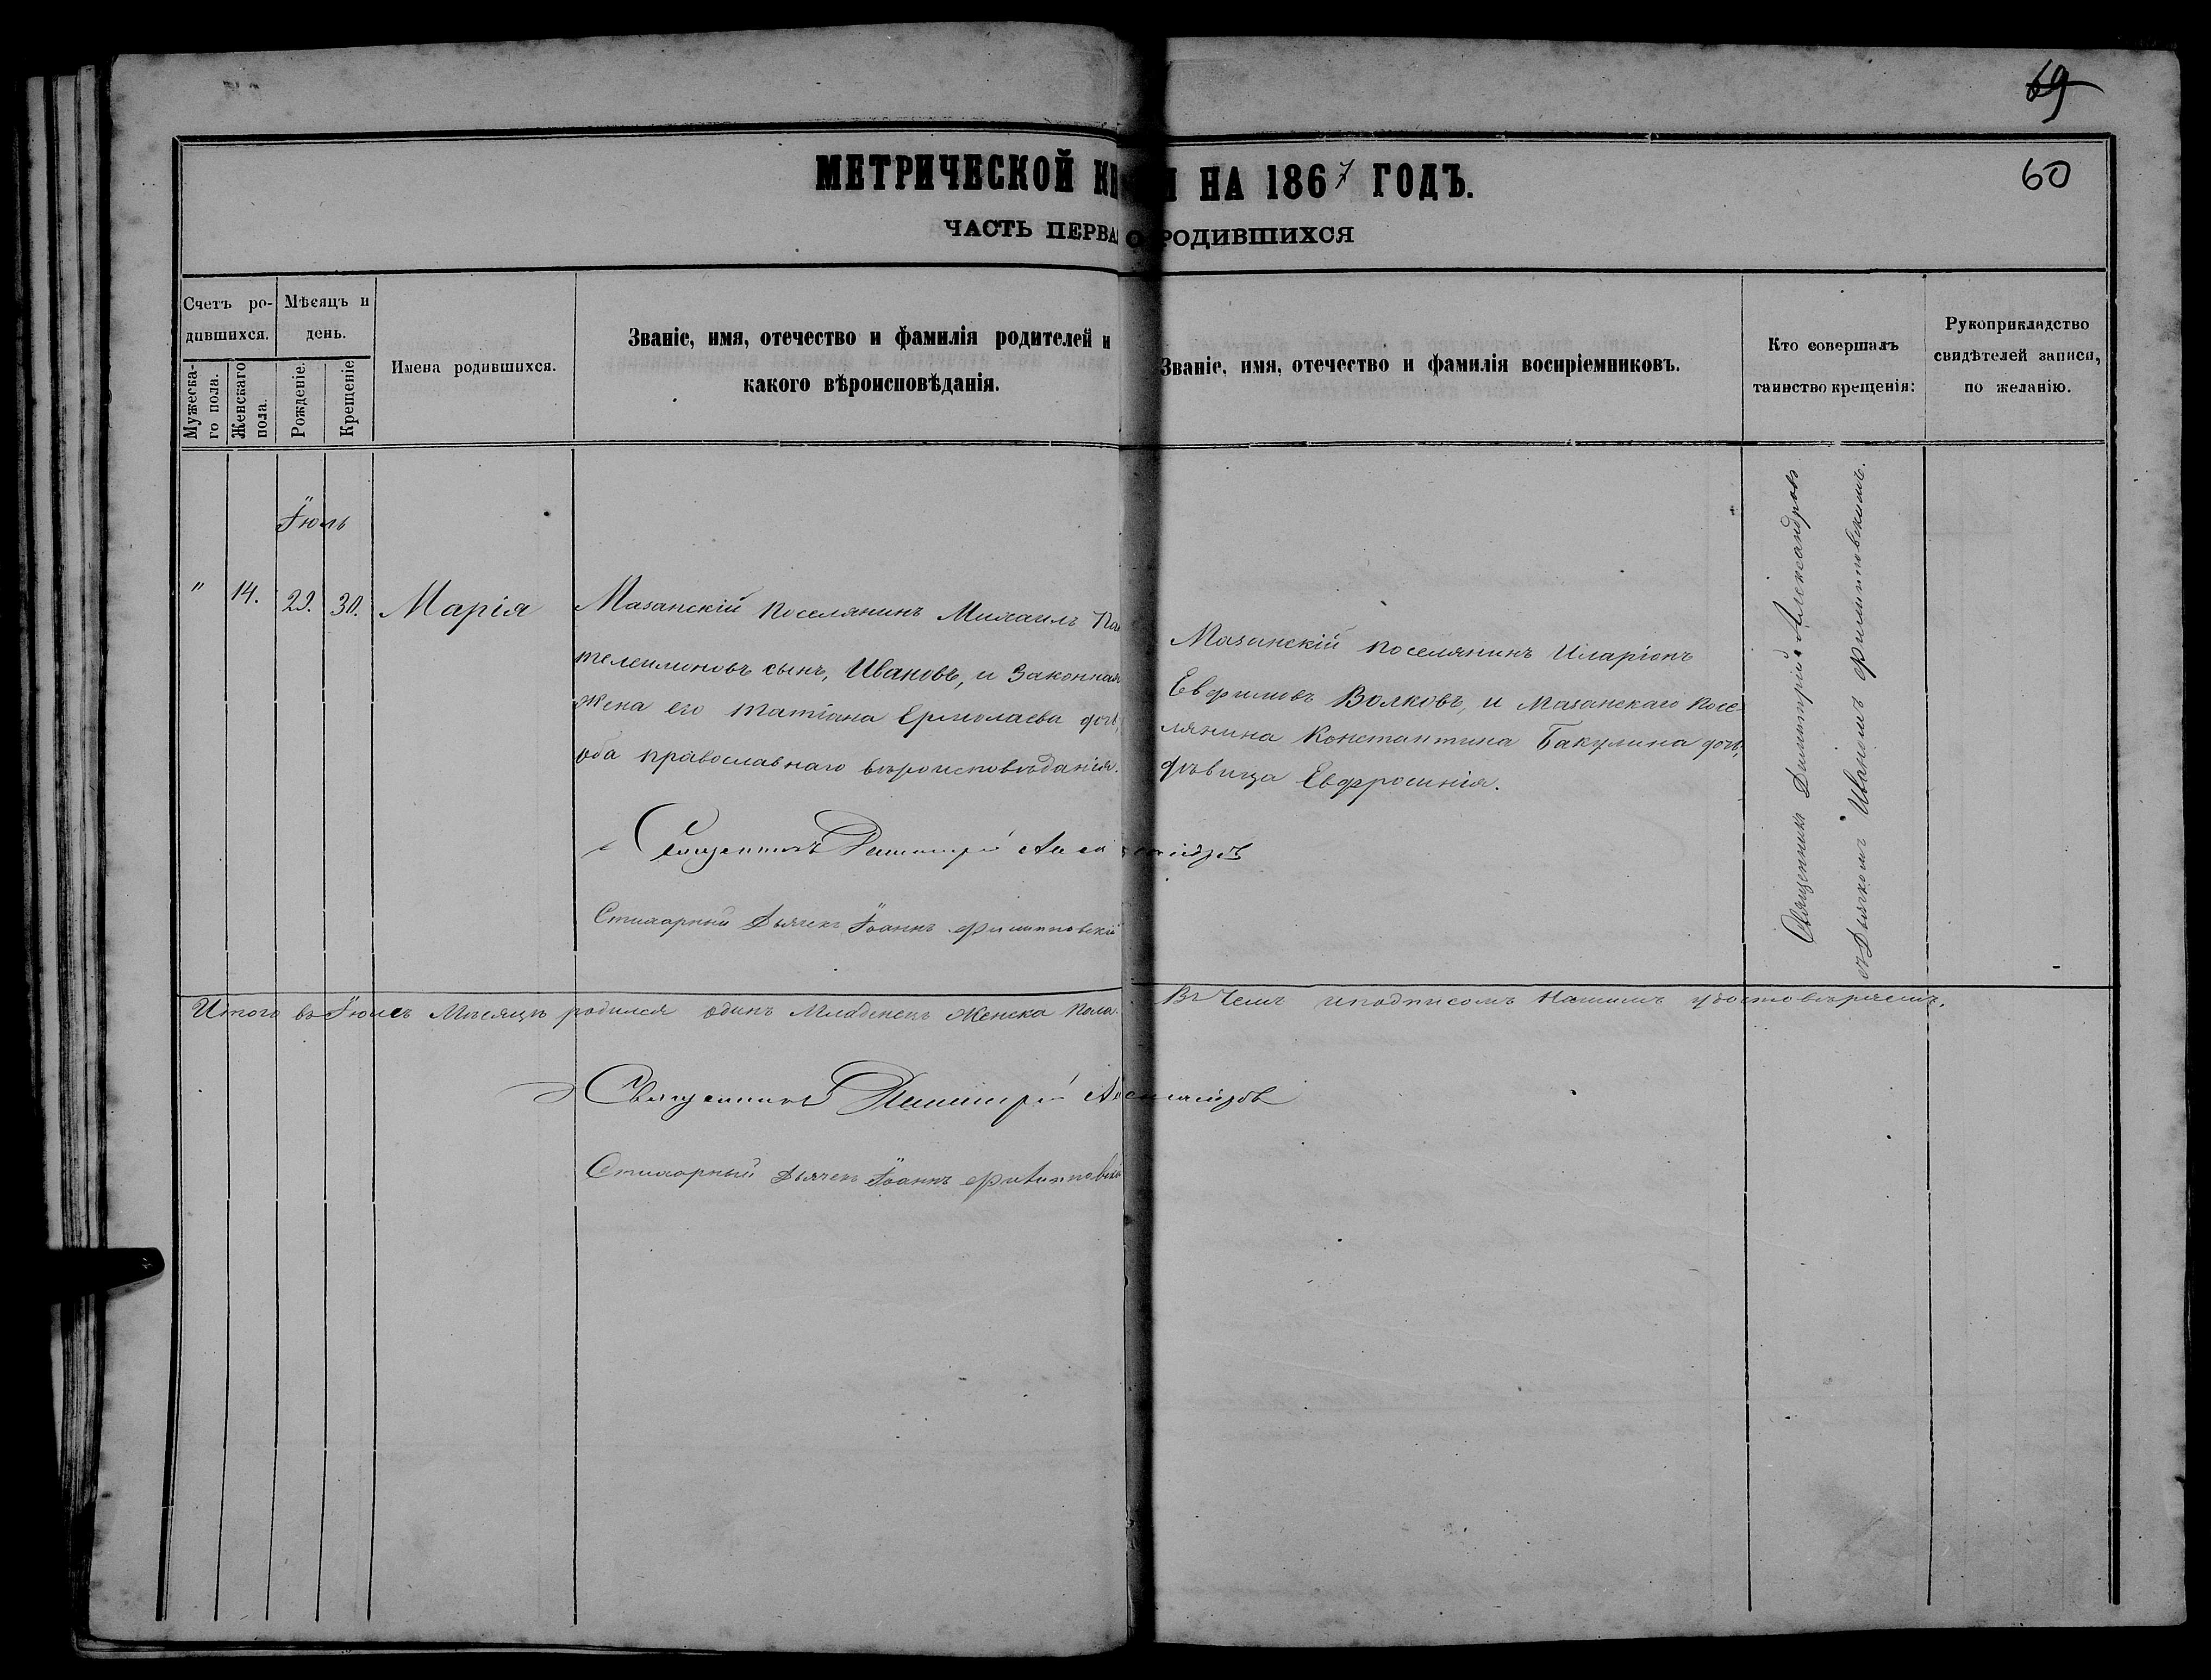 69
60
МЕТРИЧЕСКОЙ КН И НА 1867 ГОДЪ.
ЧАСТЬ ПЕРВА О РОДИВШИХСЯ
Счетъ ро-
дившихся.
Мѣсяцъ и
день.
Мужеска-
го пола.
Женскаго
пола.
Рожденіе.
Крещеніе.
Имена родившихся.
Званіе, имя, отечество и фамилія родителей и
какого вѣроисповѣданія.
Званіе, имя, отечество и фамилія воспріемниковъ.
Кто совершалъ
таинство крещенія:
Рукоприкладство
свидѣтелей записи,
по желанію.
Іюль
" 14. 29. 30. Марія
Мазанскій поселянинъ Михаилъ Пан
телеимоновъ сынъ, Ивановъ, и законная
жена его Татіана Ермолаева дочь,
оба православнаго вѣроисповѣданія.
Мазанскій поселянинъ Иларіонъ
Евфимовъ Волковъ, и Мазанскаго посе-
лянина Константина Бакулина дочь,
дѣвица Евфросинія.
Священникъ Димитрій Александровъ
съ Дьячкомъ Иваномъ Филипповскимъ.
Священникъ Димитрій Александровъ
Стихарный Дьячекъ Іоаннъ Филипповскій
Итого въ Іюлѣ Мѣсяцѣ родился одинъ Младенецъ Женска пола. Въ Чемъ и подписомъ Нашимъ удостовѣряемъ.
Священникъ Димитрій Александровъ
Стихарный Дьячекъ Іоаннъ Филипповскі